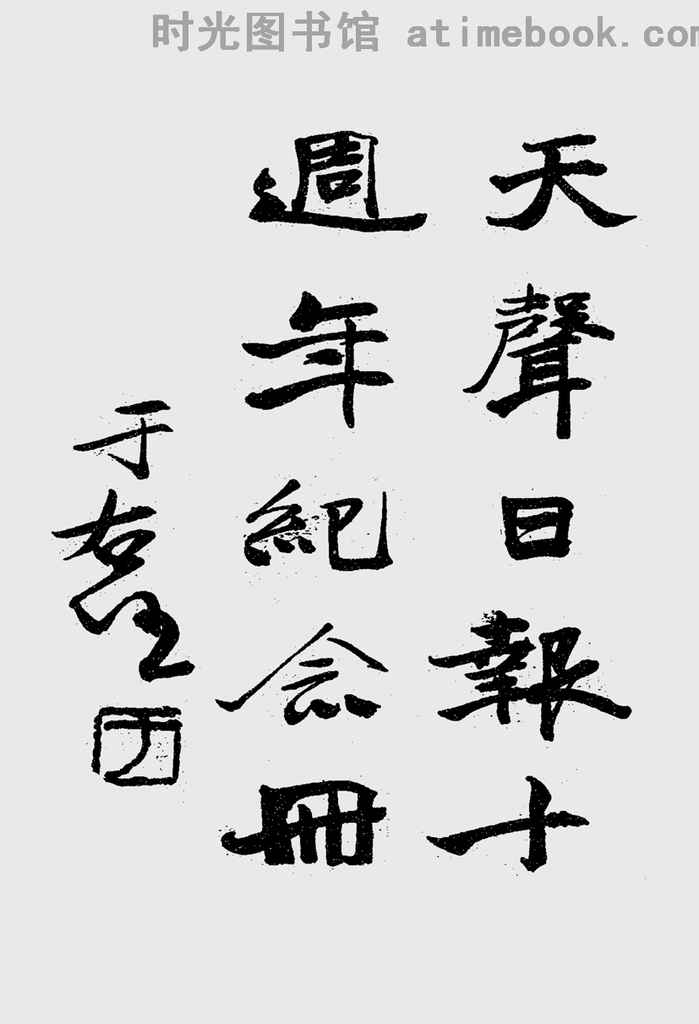 时光图书馆 atimebook.com
天聲日報十
週年紀念冊
于右任